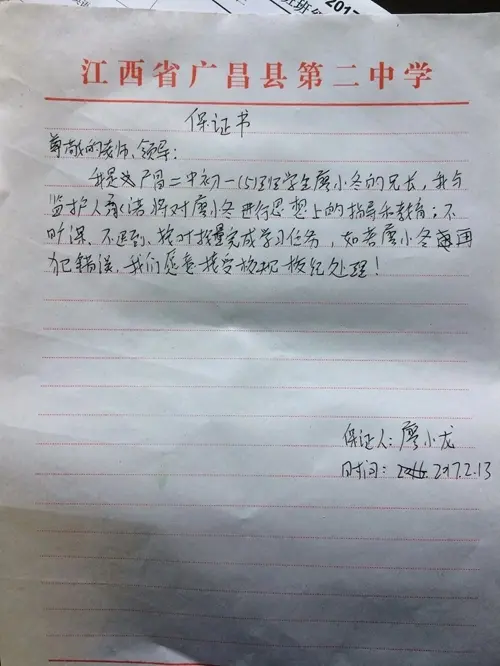 201
江西省广昌县第二中学
保证书
尊敬的老师、领导:
我是广昌二中初一(5)班学生廖小冬的兄长,我与
监护人承诺将对廖小冬进行思想上的指导和教育;不
旷课、不迟到、按时按量完成学习任务,如若廖小冬再
犯错误,我们愿意接受校规校纪处理!
保证人:廖小龙
时间:2017.2.13